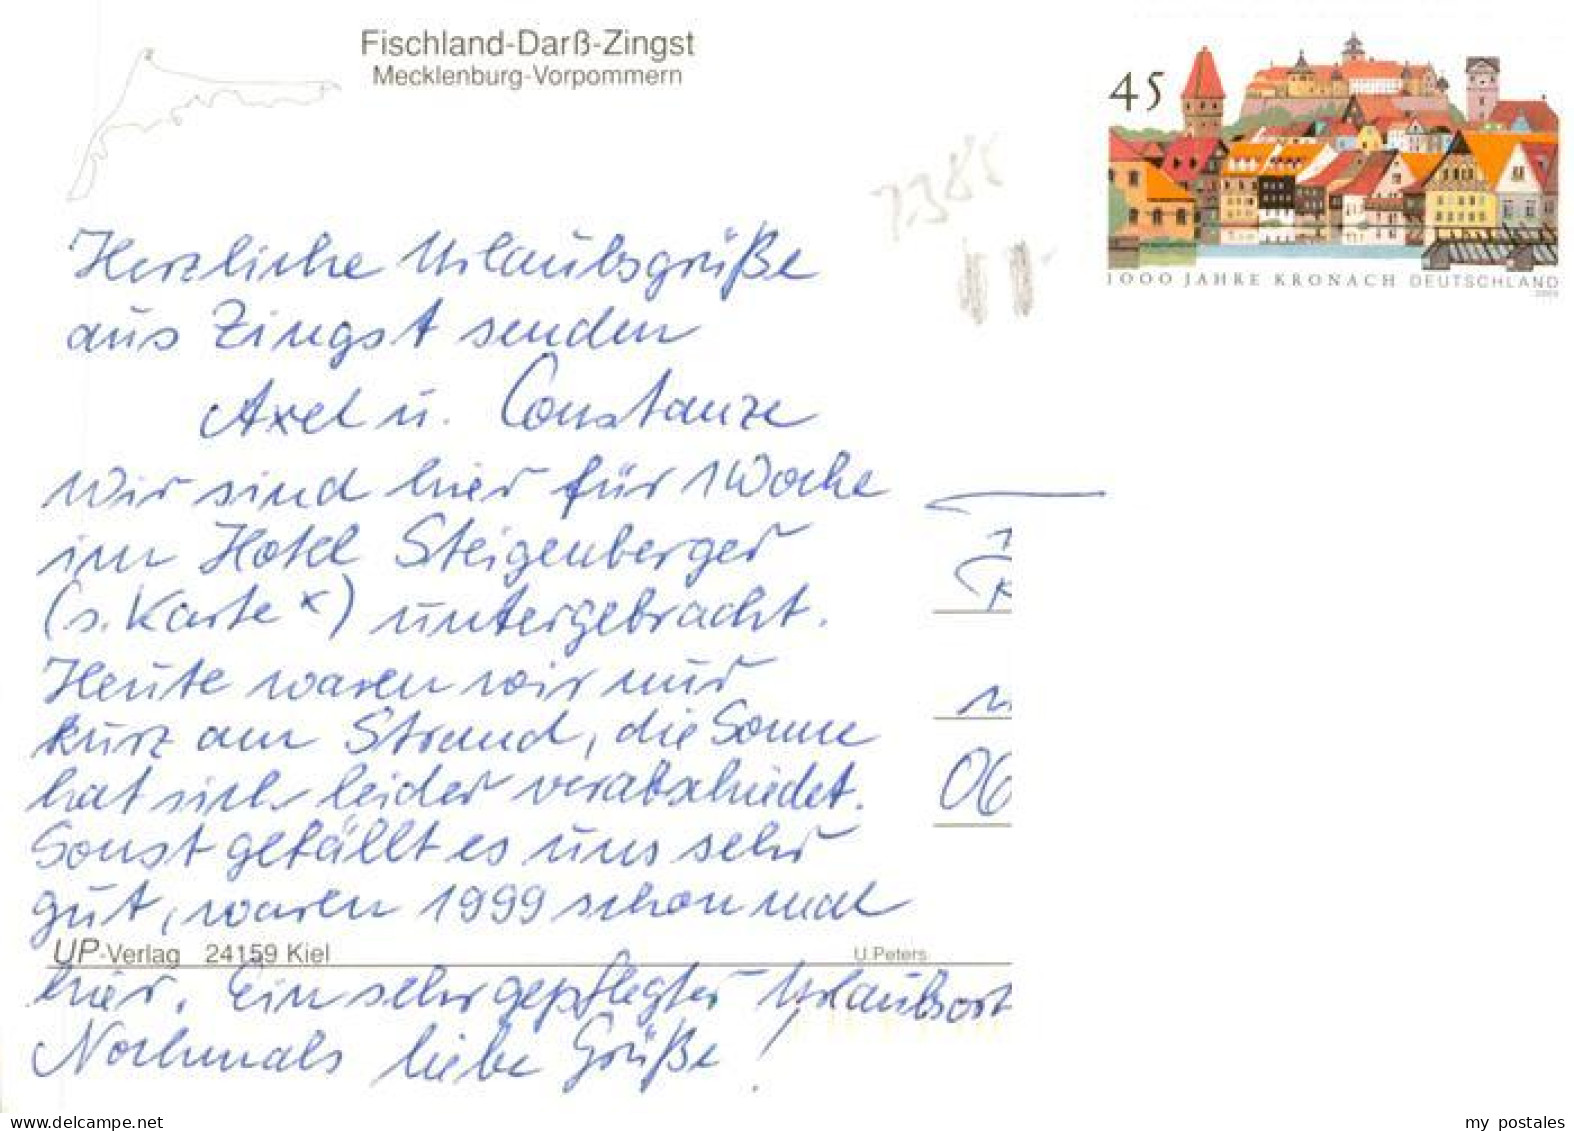 Fischland-Darß-Zingst
Mecklenburg-Vorpommern
45
1000 JAHRE KRONACH DEUTSCHLAND
7385
Herzliche Urlaubsgrüße
aus Zingst senden
Axel u. Constanze
Wir sind hier für 1 Woche
im Hotel Steigenberger
(s. Karte x) untergebracht.
Heute waren wir nur
kurz am Strand, die Sonne
hat sich leider verabschiedet.
Sonst gefällt es uns sehr
gut, waren 1999 schon mal
06
UP-Verlag 24159 Kiel
U.Peters
hier. Ein sehr gepflegter Urlaubsort
Nochmals liebe Grüße!
my postales
www.delcampe.net